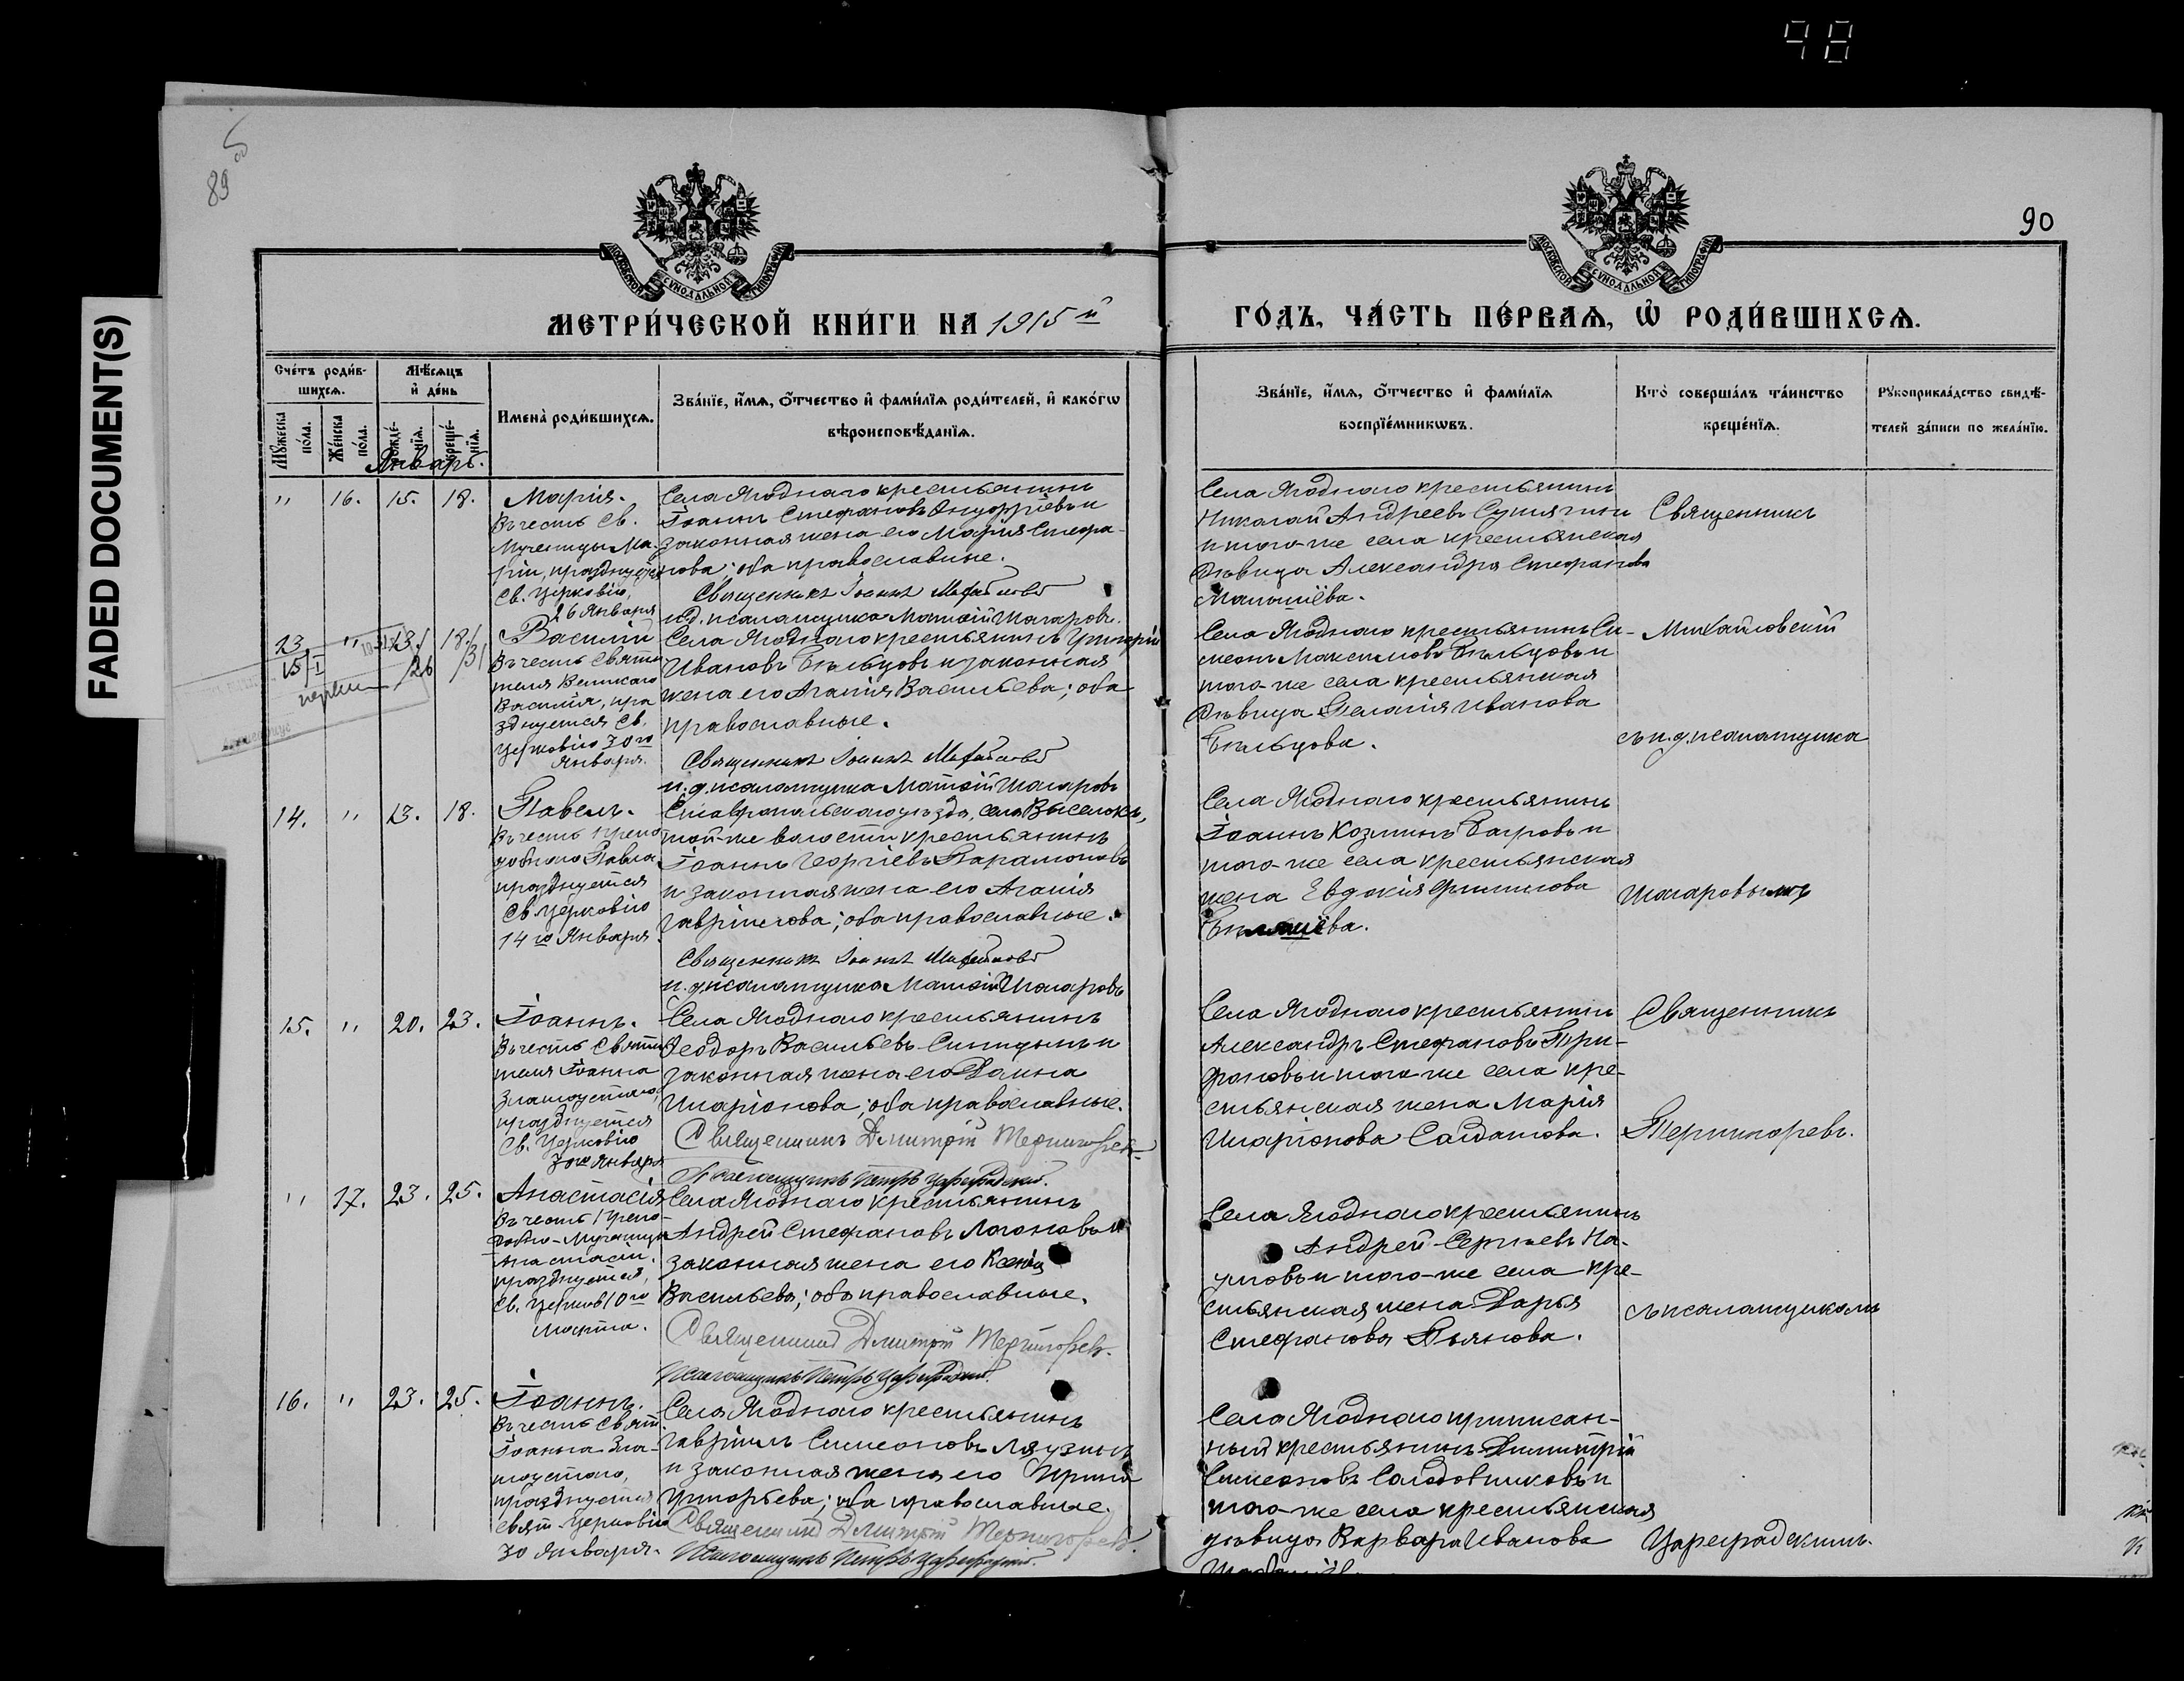 98
FADED DOCUMENT(S)
89 об
90
МОСКОВСКОЙ СѴНОДАЛЬНОЙ ТИПОГРАФІИ
МОСКОВСКОЙ СѴНОДАЛЬНОЙ ТИПОГРАФІИ
МЕТРИ́ЧЕСКОЙ КНИ́ГИ НА 1915й
ГО́ДЪ, ЧА́СТЬ ПЕ́РВАѦ, Ѡ РОДИ́ВШИХСѦ.
Сче́тъ роди́в-
шихсѧ.
Мѣ́сѧцъ
и҆ де́нь
Мꙋжеска
по́ла.
Же́нска
по́ла.
рожде́-
нїѧ.
креще́-
нїѧ.
Имена̀ роди́вшихсѧ.
Зва́нїе, и҆́мѧ, ѻ҆́тчество и҆ фами́лїѧ роди́телей, и҆ како́гѡ
вѣроисповѣ́данїѧ.
Зва́нїе, и҆́мѧ, ѻ҆́тчество и҆ фами́лїѧ
воспрїе́мникѡвъ.
Кто̀ соверша́лъ та́инство
креще́нїѧ.
Рꙋкоприкла́дство свидѣ́-
телей за́писи по жела́нїю.
Январь.
" 16. 15. 18.
Марія.
Въ честь Св.
Мученицы Ма-
ріи, празднуется
Св. Церковію,
26 Января
Села Ягоднаго крестьянинъ
Іоаннъ Стефановъ Онуфріевъ и
законная жена его Марія Стефа-
нова; оба православные.
Священникъ Іоаннъ
и.д. псаломщика Матѳій Шагаровъ.
Села Ягоднаго крестьянинъ
Николай Андреевъ
и того-же села крестьянская
дѣвица Александра Стефанова
Малышёва.
Священникъ
13 " 13/26 18/31
15/I
Василій
Въ честь Святи-
теля Великаго
Василія, пра
зднуется Св.
Церковію 30го
Января.
Села Ягоднаго крестьянинъ Григорій
Ивановъ Бѣльцовъ и законная
жена его Агапія Васильева; оба
православные.
Священникъ Іоаннъ
и.д. псаломщика Матѳій Шагаровъ
Села Ягоднаго крестьянинъ Си-
меонъ Максимовъ Бѣльцовъ и
того-же села крестьянская
дѣвица Пелагія Иванова
Бѣльцова.
Михайловскій
съ и.д. псаломщика
14. " 13. 18.
Павелъ.
Въ честь Препо
добнаго Павла
празднуется
Св. Церковію
14го Января.
Ставропольскаго уѣзда, села Выселокъ,
той-же волости крестьянинъ
Іоаннъ Георгіевъ Парамоновъ
и законная жена его Агапія
Гавріилова; оба православные.
Священникъ Іоаннъ
и.д. псаломщика Матѳій Шагаровъ
Села Ягоднаго крестьянинъ
Іоаннъ Козминъ Багровъ и
того-же села крестьянская
жена Евдокія Филиппова
Шагаровымъ
15. " 20. 23.
Іоаннъ.
Въ честь Святи
теля Іоанна
Златоустаго,
празднуется
Св. Церковію
30го Января
Села Ягоднаго крестьянинъ
Ѳеодоръ Васильевъ Синицынъ и
законная жена его Домна
Иларіонова; оба православные.
Священникъ Дмитрій Терпигоревъ
Псаломщикъ Петръ Цареградскій.
Села Ягоднаго крестьянинъ
Александръ Стефановъ Три-
фоновъ и того же села кре-
стьянская жена Марія
Иларіонова Салдатова.
Священникъ
Терпигоревъ.
" 17. 23. 25.
Анастасія
Въ честь Препо-
добно-Мученицы
Анастасіи,
празднуется,
Св. Церков 10го
Марта.
Села Ягоднаго крестьянинъ
Андрей Стефановъ Логоновъ и
законная жена его Ксенія
Васильева; оба православные.
Священникъ Дмитрій Терпигоревъ.
Псаломщикъ Петръ Цареградскій.
Села Ягоднаго крестьянинъ
Андрей Сергіевъ На-
умовъ и того-же села кре-
стьянская жена Дарья
Стефанова Пьянова.
съ псаломщикомъ
16. " 23. 25.
Іоаннъ.
Въ честь Свят.
Іоанна Зла-
тоустаго,
празднуется
Свят. Церковію
30 Января.
Села Ягоднаго крестьянинъ
Гавріилъ Симеоновъ Лягузинъ
и законная жена его Ирина
Григорьева; оба православные.
Священникъ Дмитрій Терпигоревъ.
Псаломщикъ Петръ Цареградскій.
Села Ягоднаго приписан-
ный крестьянинъ Димитрій
Симеоновъ Солодовниковъ и
того-же села крестьянская
дѣвица Варвара Иванова
Цареградскимъ.